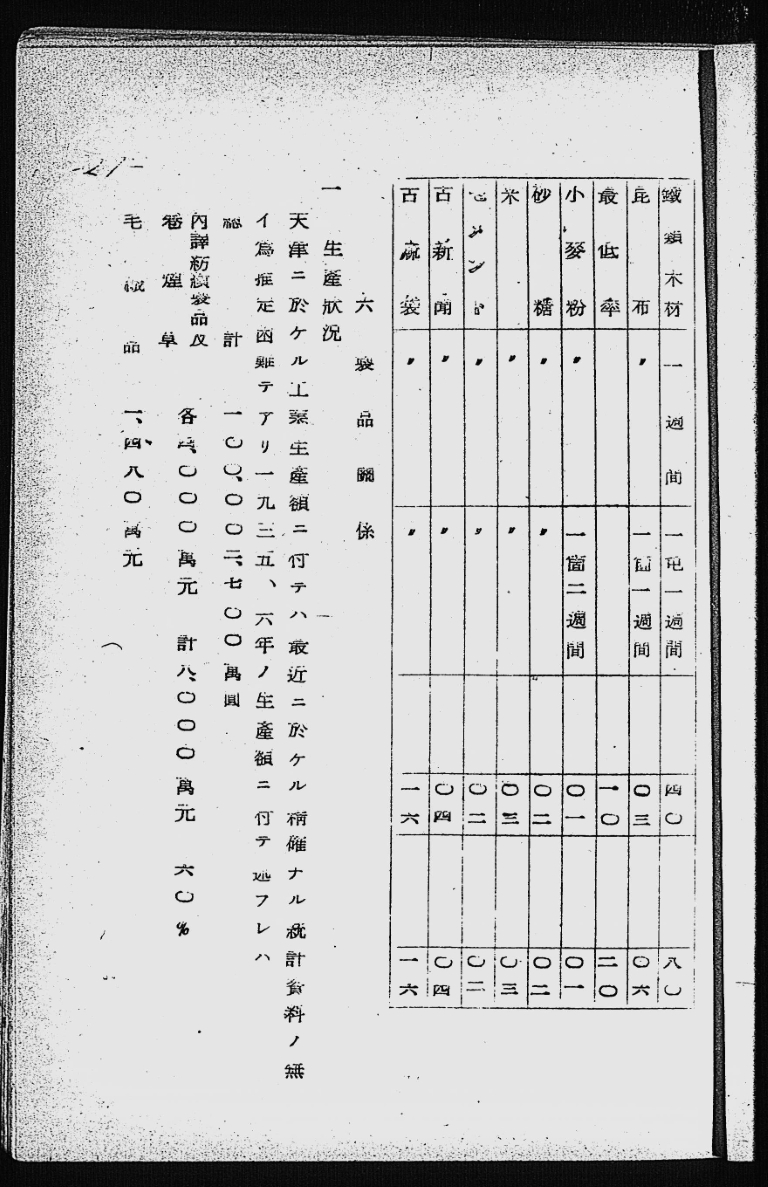 鐵類木材 一週間 一屯一週間 四〇 八〇
昆布 〃 一箇一週間 〇三 〇六
最低率 一〇 二〇
小麥粉 〃 一箇二週間 〇一 〇一
砂糖 〃 〃 〇二 〇二
米 〃 〃 〇三 〇三
セメント 〃 〃 〇二 〇二
古新聞 〃 〃 〇四 〇四
古麻袋 〃 〃 一六 一六
六 製品關係
一 生產狀況
天津ニ於ケル工業生產額ニ付テハ最近ニ於ケル精確ナル統計資料ノ無
イ爲推定困難テアリ一九三五、六年ノ生產額ニ付テ述フレハ
總計 一〇〇、〇〇二、七〇〇萬圓
內譯紡績製品及
卷煙草 各四、〇〇〇萬元 計八、〇〇〇萬元 六〇%
毛織品 一、四八〇萬元
-27-